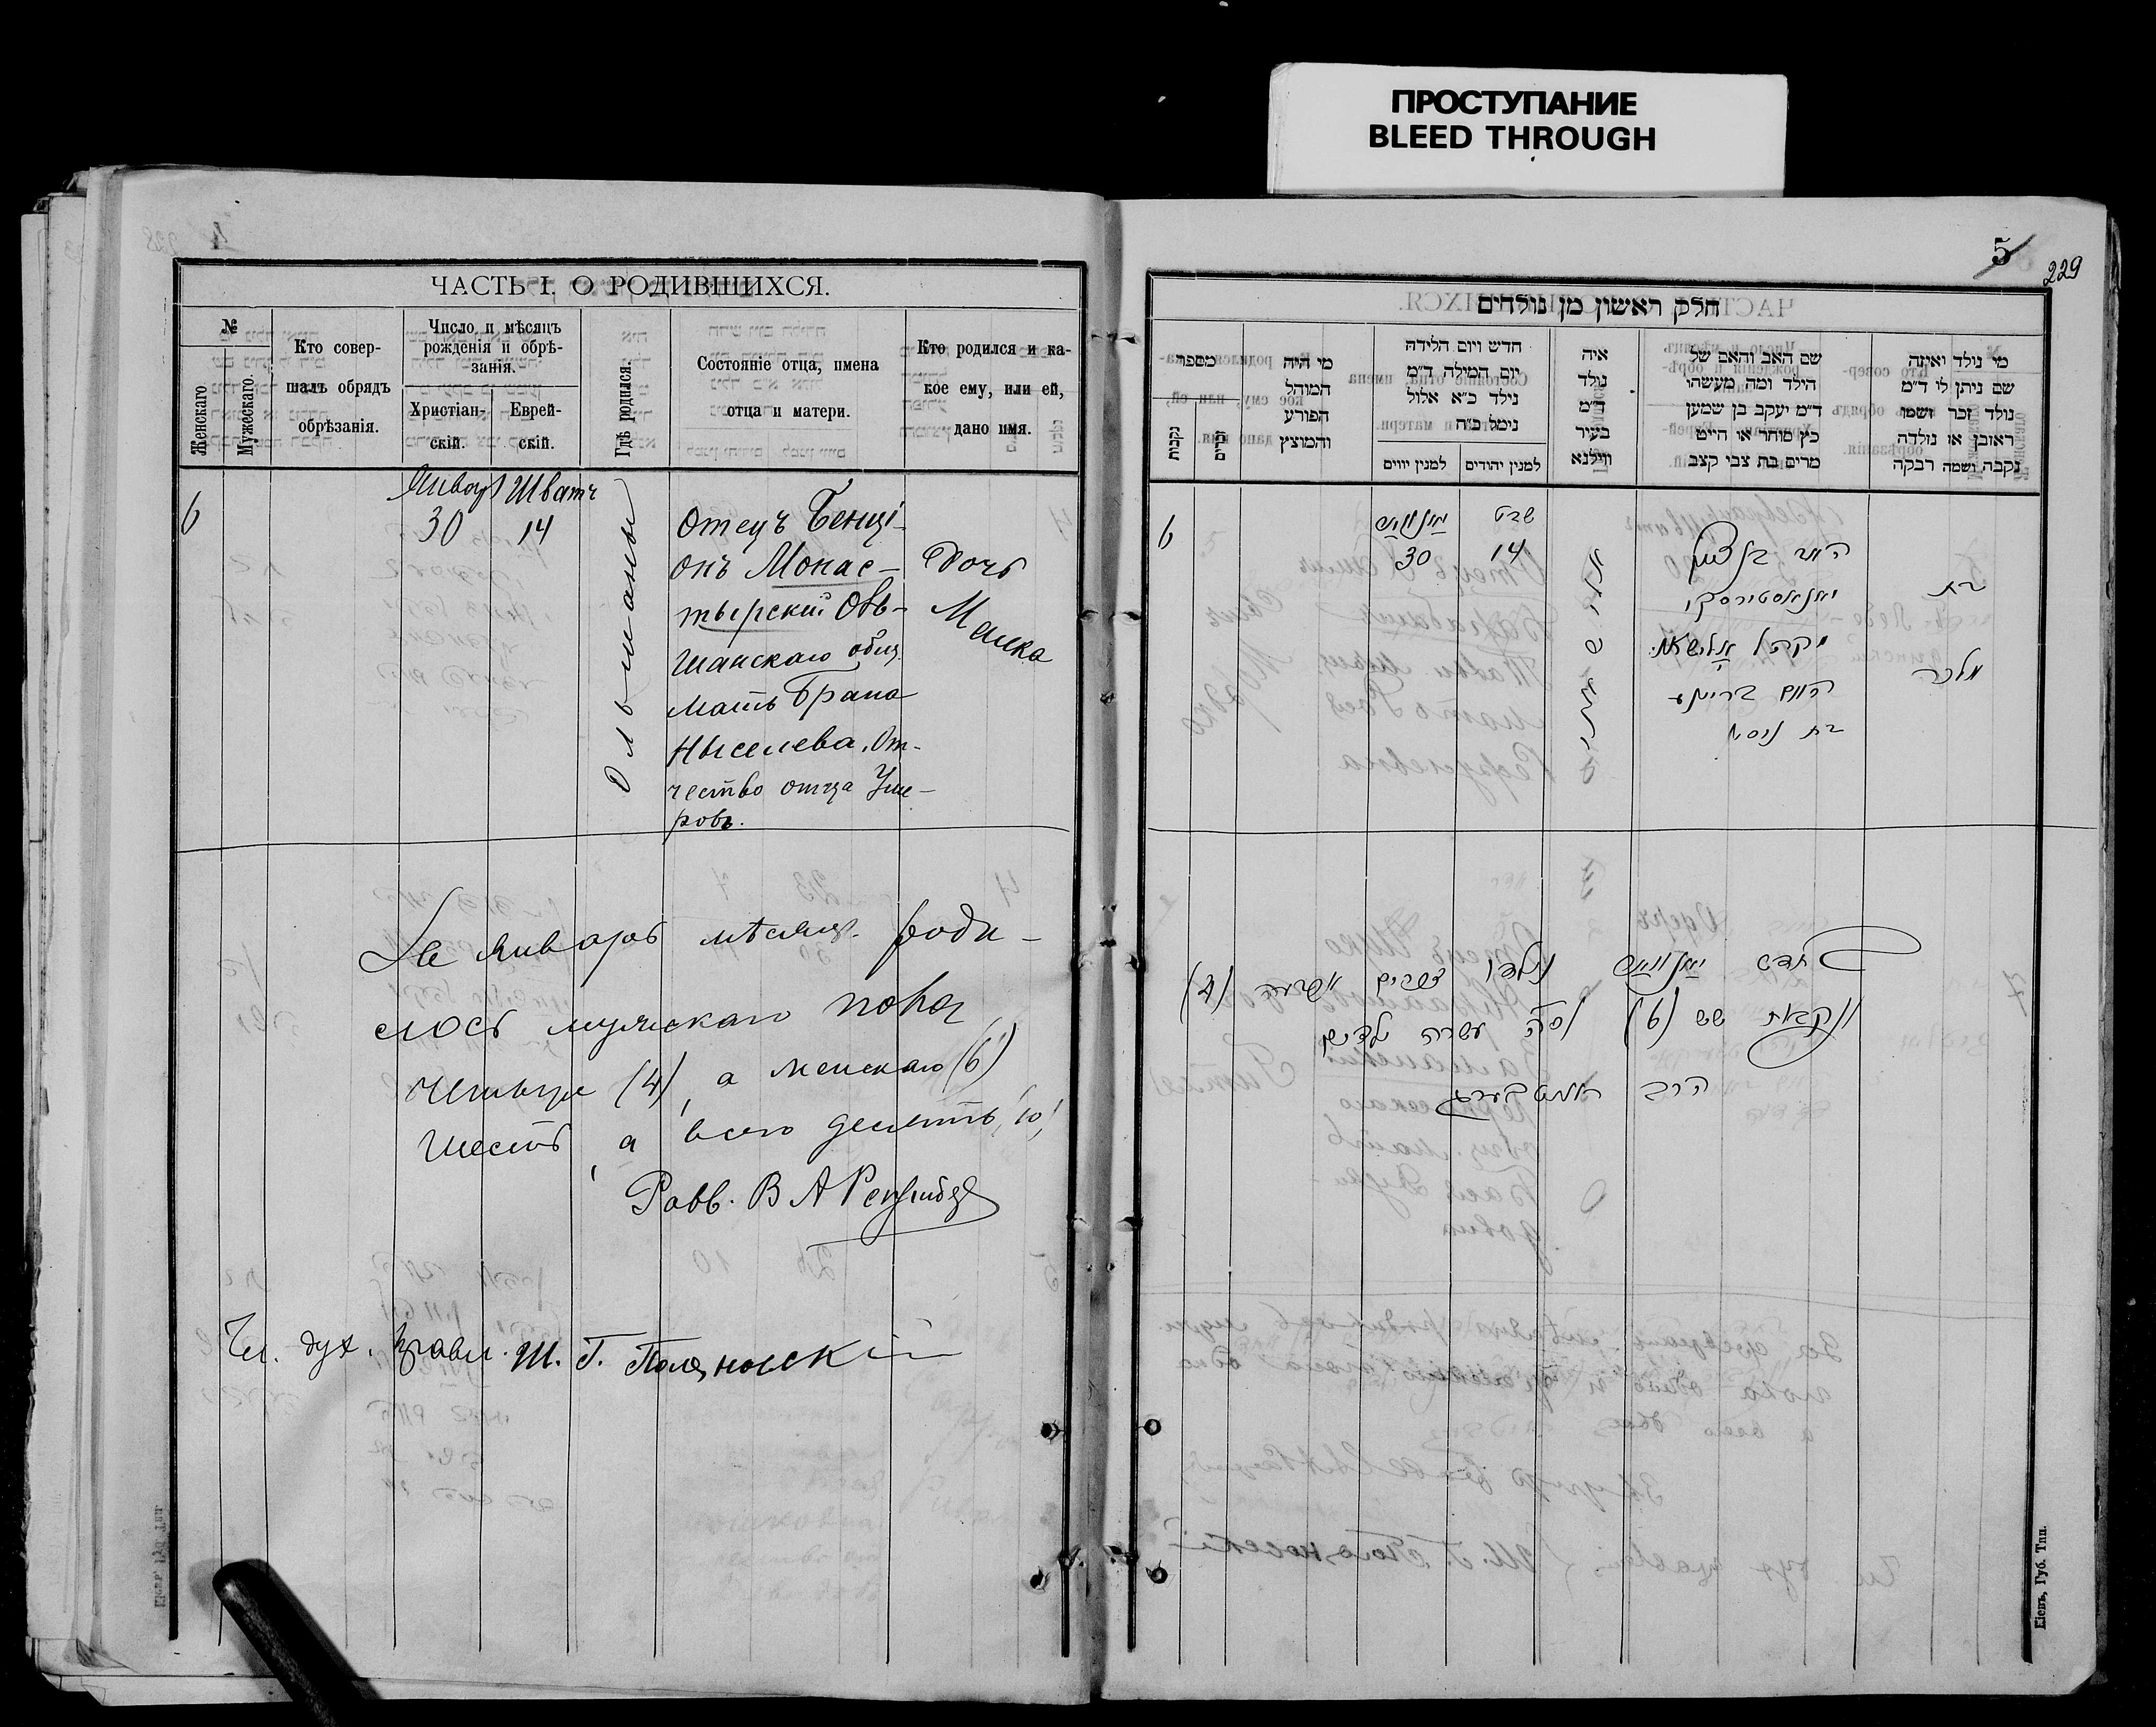 ПРОСТУПАНИЕ
BLEED THROUGH
ЧАСТЬ I. О РОДИВШИХСЯ.
№
Женскаго
Мужескаго.
Кто совер-
шалъ обрядъ
обрѣзанія.
Число и мѣсяцъ
рожденія и обрѣ-
занія.
Христіан-
скій.
Еврей-
скій.
Гдѣ родился.
Состояніе отца, имена
отца и матери.
Кто родился и ка-
кое ему, или ей,
дано имя.
6
Январь
30
Шватъ
14
Ольшаны
Отецъ Бенці-
онъ Монас-
тырскій Оль-
шанскаго общ.
Мать Брана
Ныселева. От-
чество отца Уше-
ровъ.
Дочь
Малка
За Январь мѣсяцъ роди-
лось мужскаго пола
четыре (4), а женскаго (6)
шесть, а всего десять (10)
Равв.
Чл. духъ. правл. Ш. Г.
5
229
חלק ראשון מן נולדים
מי נולד ואיזה
שם ניתן לו ד״מ
נולד זכר ושמו
ראובן או נולדה
נקבה ושמה רבקה
שם האב והאם של
הילד ומה מעשהו
ד״מ יעקב בן שמען
כץ סוחר או חייט
מרים בת צבי קצב
איה
נולד
ד״מ
בעיר
ווילנא
חדש ויום הלידה
יום המילה ד״מ
נולד כ״א אלול
נימל כ״ח
למנין יהודים
למנין יווים
מי היה
המוהל
הפורע
והמוצץ
מספר
זכרים
נקבות
בת
מלכה
האב בן ציון
מאנאסטירסקי
מקהל אלשאנ
האם בריינע
בת ניסל
שבט
14
יאנואר
30
6
חדש יאנואר נולדו זכרים ארבעה (4)
ונקבות שש (6) וסה עשרה ילדים
הרב
Кіевъ, Губ. Тип.